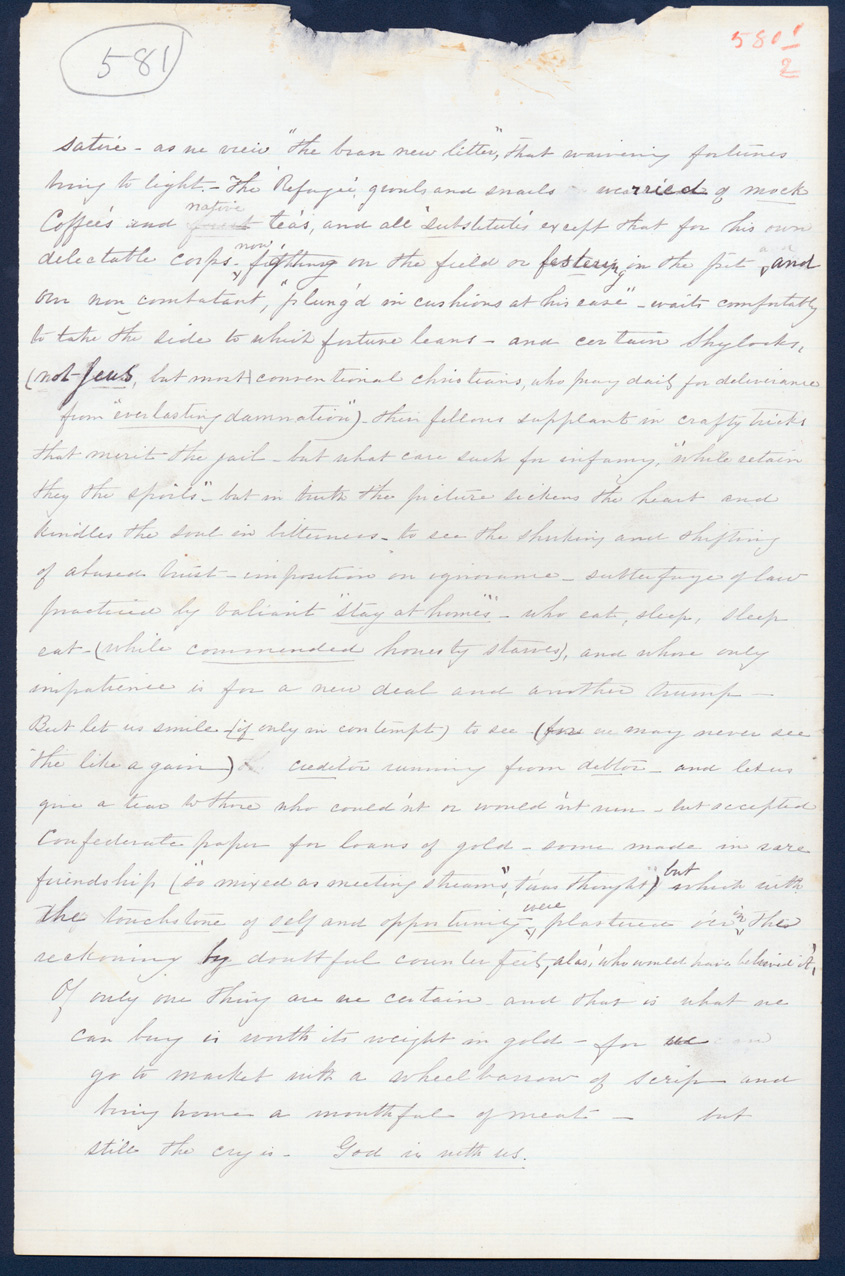 581
581 1/2
satire - as we view "the bran new litter", that waivering fortunes
bring to light. - The Refugee, growls and snarls wearried of mock
Coffee's and native tea's, and all "substitutes" except that for his own
delectable corps - now fighting on the field or festering in the pit and
our non-combatant, "plung'd in cushions at his ease" - waits comfortably
to take the side to which fortune leans - and certain Shylocks,
(not Jews, but most conventional christians, who pray daily for deliverance
from "everlasting damnation") - their fellows supplant in crafty tricks
that merit the jail - but what care such for infamy, "while retain
they the spoils" - but in truth the picture sickens the heart and
kindles the soul in bitterness - to see the shirking and shifting
of abused trust - imposition on ignorance - subterfuge of law
practiced by valiant "stay at home's" - who eat, sleep, sleep
eat - (while commended honesty starves), and whose only
impatience is for a new deal and another trump -
But let us smile (if only in contempt) to see - (for we may never see
the like again) creditor running from debtor - and let us
give a tear to those who could'nt or would'nt run - but accepted
Confederate paper for loans of gold - some made in rare
friendship ("so mixed as meeting streams", t'was thought) but which with
the touchstone of self and opportunity were plastered o'er in the
reckoning by doubtful counterfeits, alas! who would have believed it!,
Of only one thing are we certain - and that is what we
can buy is worth its weight in gold - for we
go to market with a wheelbarrow of scrip and
bring home a mouthful of meat - but
still the cry is - God is with us.